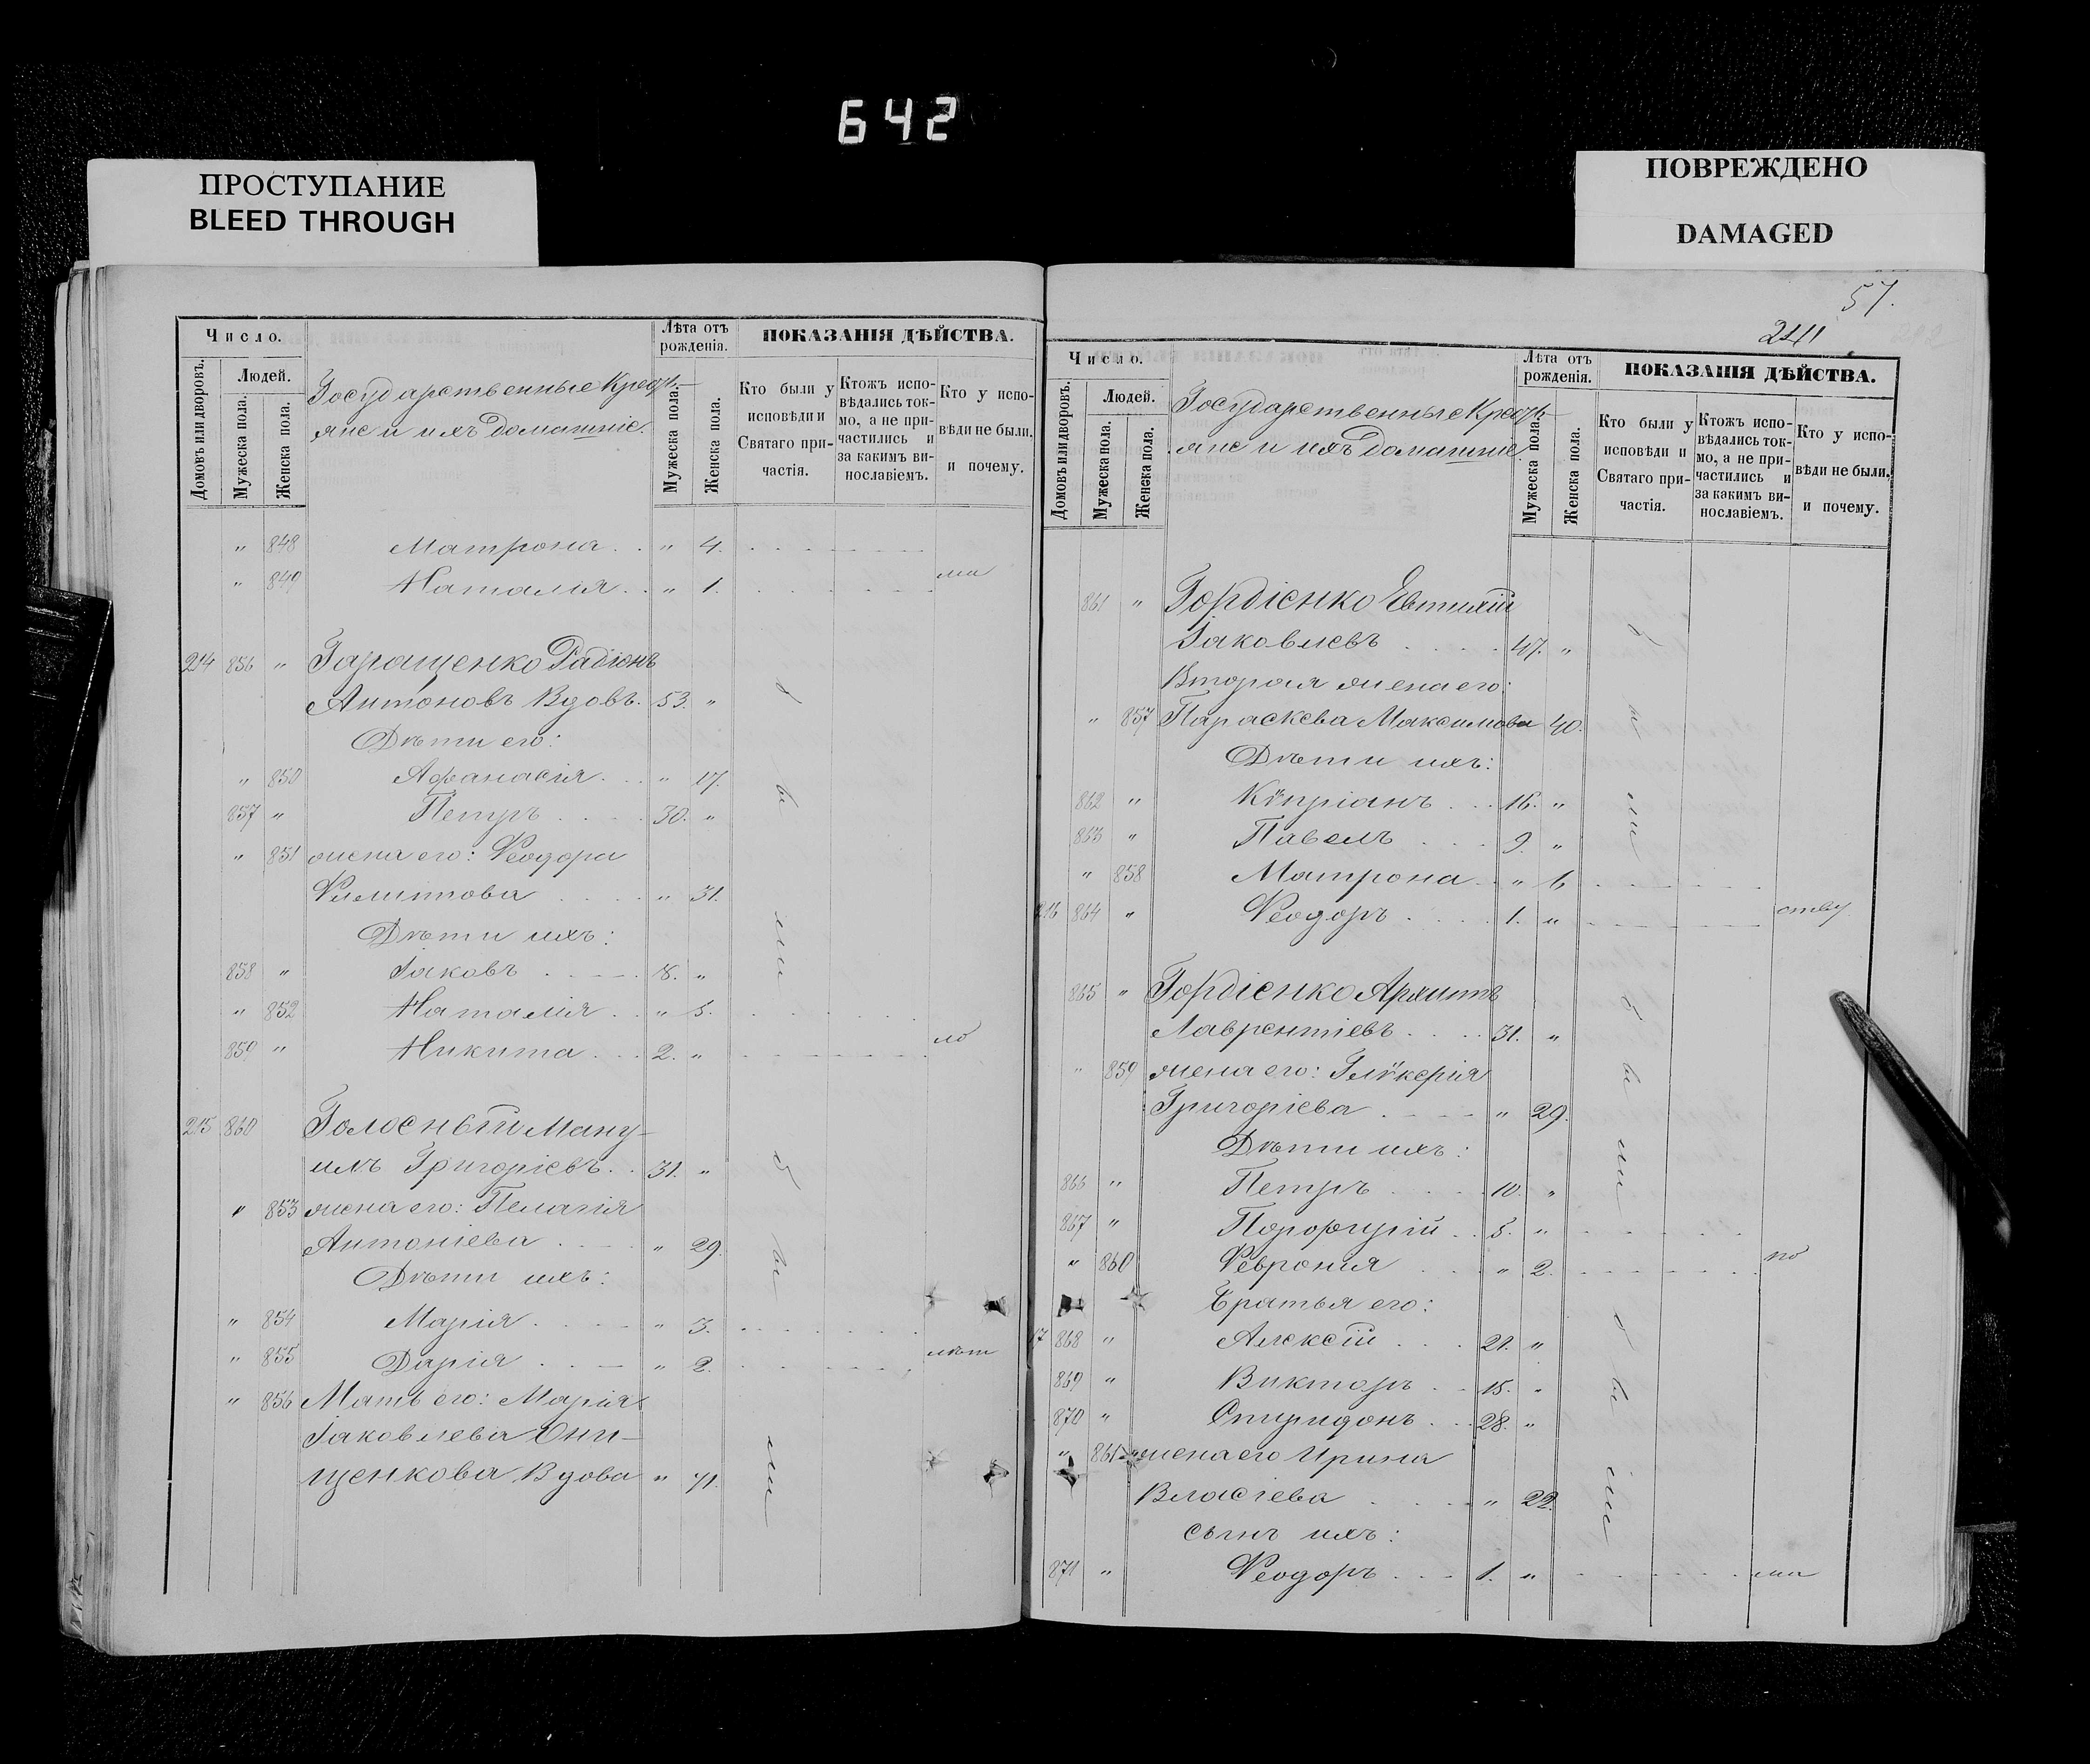 642
ПРОСТУПАНИЕ
BLEED THROUGH
ПОВРЕЖДЕНО
DAMAGED
57.
241
Число.
Лѣта отъ рожденія.
ПОКАЗАНІЯ ДѢЙСТВА.
Домовъ или дворовъ.
Людей.
Мужеска пола.
Женска пола.
Государственные Кресть-
яне и ихъ домашніе.
Мужеска пола.
Женска пола.
Кто были у исповѣди и Святаго причастія.
Ктожъ исповѣдались токмо, а не причастились и за какимъ винославіемъ.
Кто у исповѣди не были, и почему.
" 848 Матрона . . " 4.
" 849 Наталія . . " 1. ма
214 856 " Гаращенко Радіонъ
Антоновъ Вдовъ. 53. "
Дѣти его:
" 850 Афанасія . . " 17.
857 " Петръ . . . 30. "
" 851 жена его: Ѳеодора
Филиппова . . . " 31.
Дѣти ихъ:
858 " Іаковъ . . . 8. "
" 852 Наталія . . " 5.
859 " Никита . . . 2. " ло
215 860 Голосный Ману-
илъ Григорієвъ . . 31. "
" 853 жена его: Пелагія
Антонієва . . . " 29.
Дѣти ихъ:
" 854 Марія . . . " 3.
" 855 Дарія . . . " 2. лѣт
" 856 Мать его: Марія
Іаковлева Они-
щенкова Вдова " 71.
бы
ли
бы
ли
Число.
Лѣта отъ рожденія.
ПОКАЗАНІЯ ДѢЙСТВА.
Домовъ или дворовъ.
Людей.
Мужеска пола.
Женска пола.
Государственные Кресть-
яне и ихъ домашніе.
Мужеска пола.
Женска пола.
Кто были у исповѣди и Святаго причастія.
Ктожъ исповѣдались токмо, а не причастились и за какимъ винославіемъ.
Кто у исповѣди не были, и почему.
861 " Гордієнко Евтихій
Іаковлевъ . . . . 47. "
Вторая жена его:
" 857 Параскева Максимова 40.
Дѣти ихъ:
862 " Кѵпріанъ . . . 16. "
863 " Павелъ . . . 9. "
" 858 Матрона . . " 6
216 864 " Ѳеодоръ . . . . 1. " ству
865 " Гордієнко Архиппъ
Лаврентіевъ . . . . 31. "
" 859 жена его: Глѵкерія
Григорієва . . . " 29.
Дѣти ихъ:
866 " Петръ . . . . 10. "
867 " Порфирій . . 5. "
" 860 Ѳевронія . . . " 2. по
Братья его:
17 868 " Алексій . . . 21. "
869 " Викторъ . . 15. "
870 " Спиридонъ . . . 28. "
" 861 жена его Ирина
Власіева . . . . " 22.
сынъ ихъ:
871 " Ѳеодоръ . . . 1. " ма
бы
ли
бы
ли
бы
ли